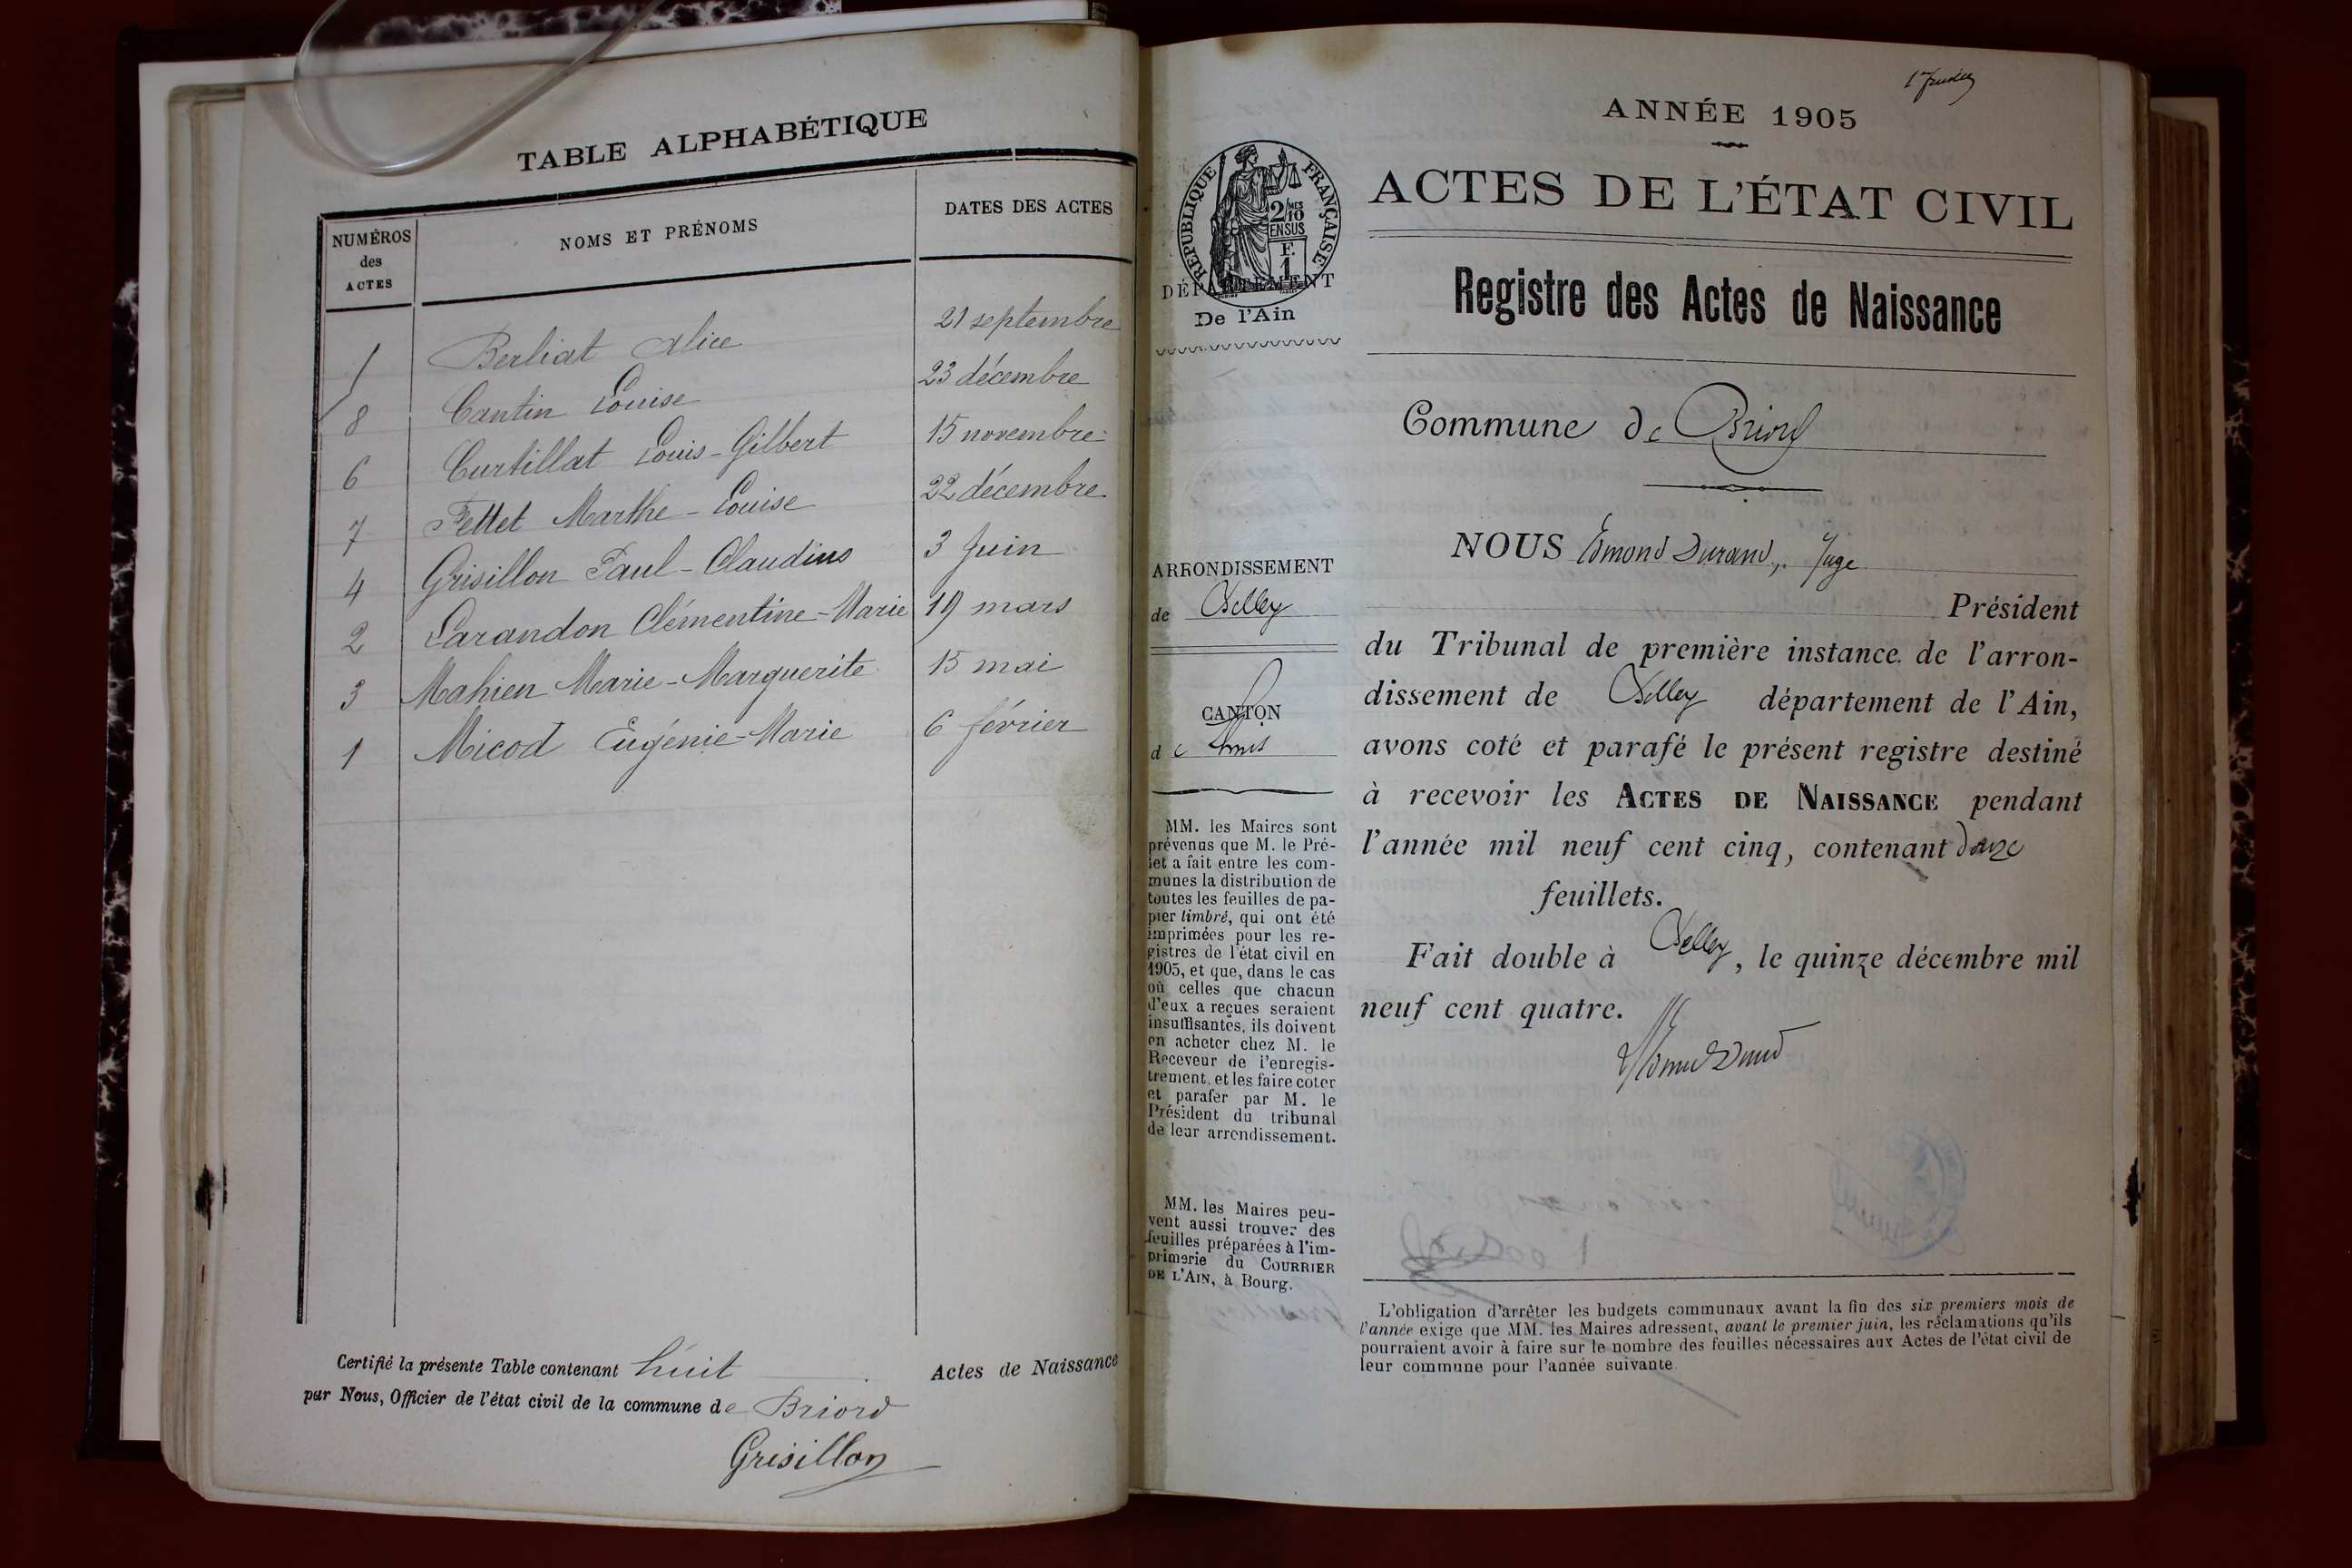 TABLE ALPHABÉTIQUE
NUMÉROS
des
ACTES
NOMS ET PRÉNOMS
DATES DES ACTES
Berliat Alice 21 septembre
8 Cantin Louise 23 décembre
6 Curtillat Louis-Gilbert 15 novembre
7 Fettet Marthe-Louise 22 décembre
4 Grisillon Paul-Claudius 3 Juin
2 Larandon Clémentine-Marie 19 mars
3 Mahien Marie-Marguerite 15 mai
1 Micod Eugénie-Marie 6 février
Certifié la présente Table contenant huit Actes de Naissance
par Nous, Officier de l'état civil de la commune de Briord
Grisillon
ANNÉE 1905
RÉPUBLIQUE FRANÇAISE
2/10 MES
EN SUS
F.
1
DÉPARTEMENT
De l'Ain
ARRONDISSEMENT
de Belley
CANTON
de
MM. les Maires sont
prévenus que M. le Pré-
fet a fait entre les com-
munes la distribution de
toutes les feuilles de pa-
pier timbré, qui ont été
imprimées pour les re-
gistres de l'état civil en
1905, et que, dans le cas
où celles que chacun
d'eux a reçues seraient
insuffisantes, ils doivent
en acheter chez M. le
Receveur de l'enregis-
trement, et les faire coter
et parafer par M. le
Président du tribunal
de leur arrondissement.
MM. les Maires peu-
vent aussi trouver des
feuilles préparées à l'im-
primerie du COURRIER
DE L'AIN, à Bourg.
ACTES DE L'ÉTAT CIVIL
Registre des Actes de Naissance
Commune de Briord
NOUS Edmond Durand, Juge
Président
du Tribunal de première instance de l'arron-
dissement de Belley département de l'Ain,
avons coté et parafé le présent registre destiné
à recevoir les ACTES DE NAISSANCE pendant
l'année mil neuf cent cinq, contenant douze
feuillets.
Fait double à Belley, le quinze décembre mil
neuf cent quatre.
Edmond Durand
L'obligation d'arrêter les budgets communaux avant la fin des six premiers mois de
l'année exige que MM. les Maires adressent, avant le premier juin, les réclamations qu'ils
pourraient avoir à faire sur le nombre des feuilles nécessaires aux Actes de l'état civil de
leur commune pour l'année suivante.